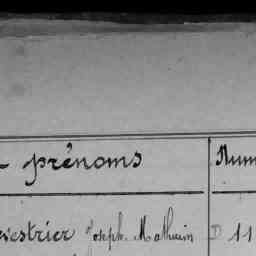 prénoms Num
estrier Joseph Mathurin D 11